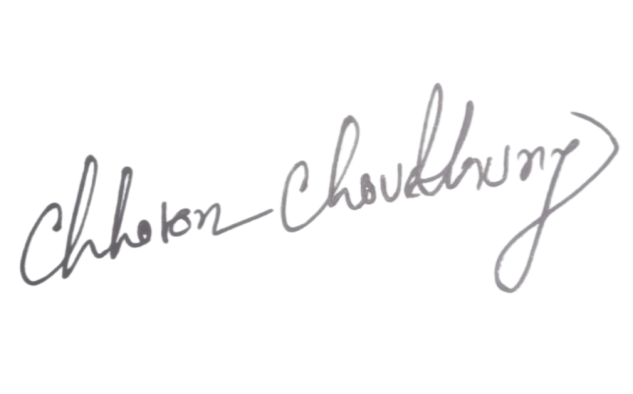 Chhoton Choudhury